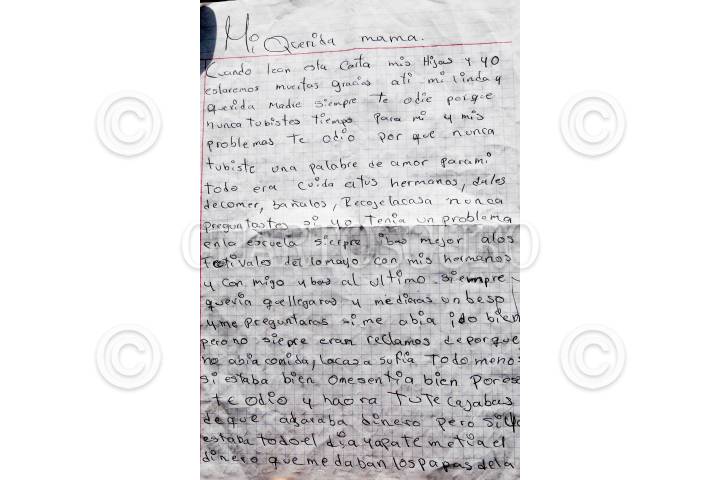 Mi Querida mama.
Cuando lean esta Carta mis Hijas y yo
estaremos muertas gracias ati mi linda y
querida Madre siempre te odie porque
nunca tubistes tiempo para mi y mis
problemas te odio por que nunca
tubiste una palabre de amor parami
todo era cuida atus hermanos, dales
decomer, bañalos, Recojelacasa nunca
preguntastes si yo tenia un problema
enla escuela siempre ibas mejor alos
festivales del 10mayo con mis hermanos
y con migo ybas al ultimo siempre
queria quellegaras y medieras unbeso
yme preguntaras sime abia ido bien
pero no siepre eran reclamos deporque
no abia comida, lacasa sufia todo menos
si estaba bien omesentia bien Porese
te odio y haora tute cajabas
deque agaraba dinero pero si yo
estaba todoel dia yapate metiael
dinero que me daban lospapas dela